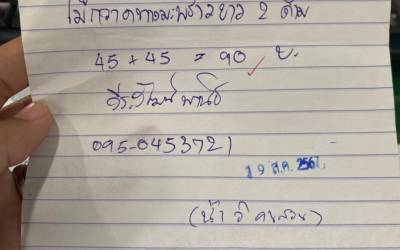 ไม้กวาดทางมะพร้าวยาว 2 ด้าม
45 + 45 = 90 บ.
095-0453721
19 ส.ค. 2567
(น้าวิ คนสวน)